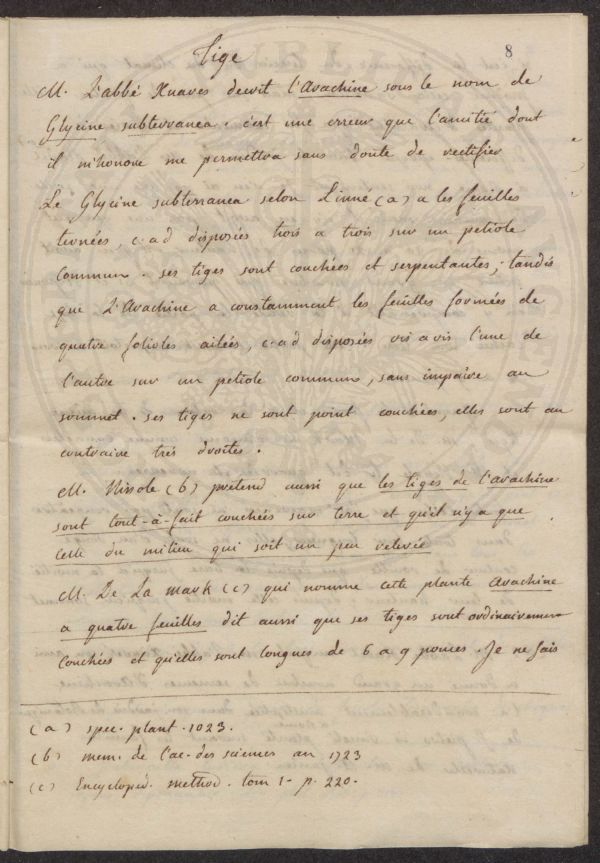 8
Tige
M. L'abbé Xuares decrit l'Arachine sous le nom de
Glycine subterranea. c'est une erreur que l'amitié dont
il m'honore me permettra sans doute de rectifier
Le Glycine subterranea selon Linné (a) a les feuilles
ternées, c.a d disposées trois a trois sur un petiole
commun. ses tiges sont couchées et serpentantes; tandis
que L'Arachine a constamment les feuilles formées de
quatre folioles ailées, c.a d disposées vis avis l'une de
l'autre sur un petiole commun, sans impaire au
sommet. ses tiges ne sont point couchées, elles sont au
contraire très droites.
M. Nissole (b) pretend aussi que les tiges de l'arachine
sont tout-à-fait couchées sur terre et qu'il n'y a que
celle du milieu qui soit un peu relevée
M. De La mark (c) qui nomme cette plante Arachine
a quatre feuilles dit aussi que ses tiges sont ordinairement
couchées et qu'elles sont longues de 6 a 9 pouces. Je ne sais
(a) spec. plant. 1023.
(b) mem. de l'ac. des sciences an 1723
(c) Encycloped. method. tom 1. p. 220.